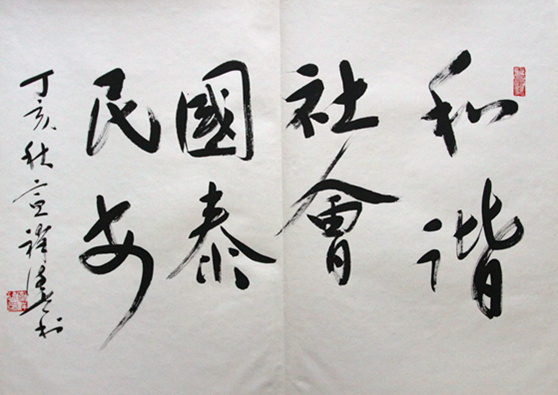 和諧
社會
國泰
民安
丁亥秋